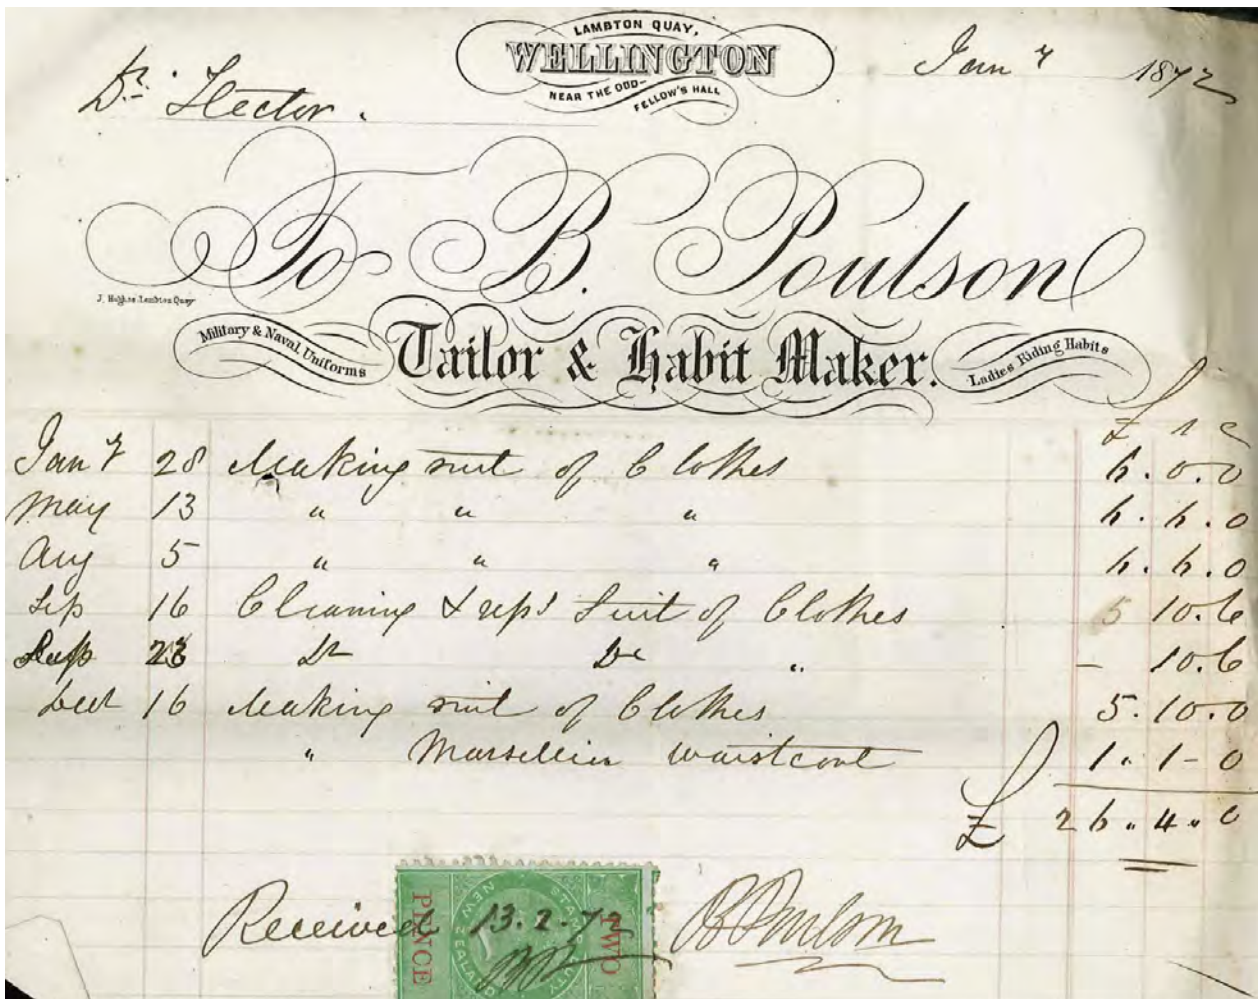 LAMBTON QUAY,
WELLINGTON
NEAR THE ODD-FELLOW'S HALL
Jany 1872
Dr. Hector.
To B. Poulson
J. Hughes Lambton Quay
Military & Naval Uniforms
Tailor & Habit Maker.
Ladies Riding Habits
£ s d
Jany 28 Making suit of Clothes 6.0.0
May 13 " " " 6.6.0
Aug 5 " " " 6.6.0
Sep 16 Cleaning & repg Suit of Clothes 5 10.6
Sep 23 Do Do " - 10.6
16 Making suit of Clothes 5.10.0
" Marsellien waistcoat 1.1-0
£ 26.4.0
Received 13.2.72 B Poulson
NEW ZEALAND STAMP DUTY
TWO PENCE